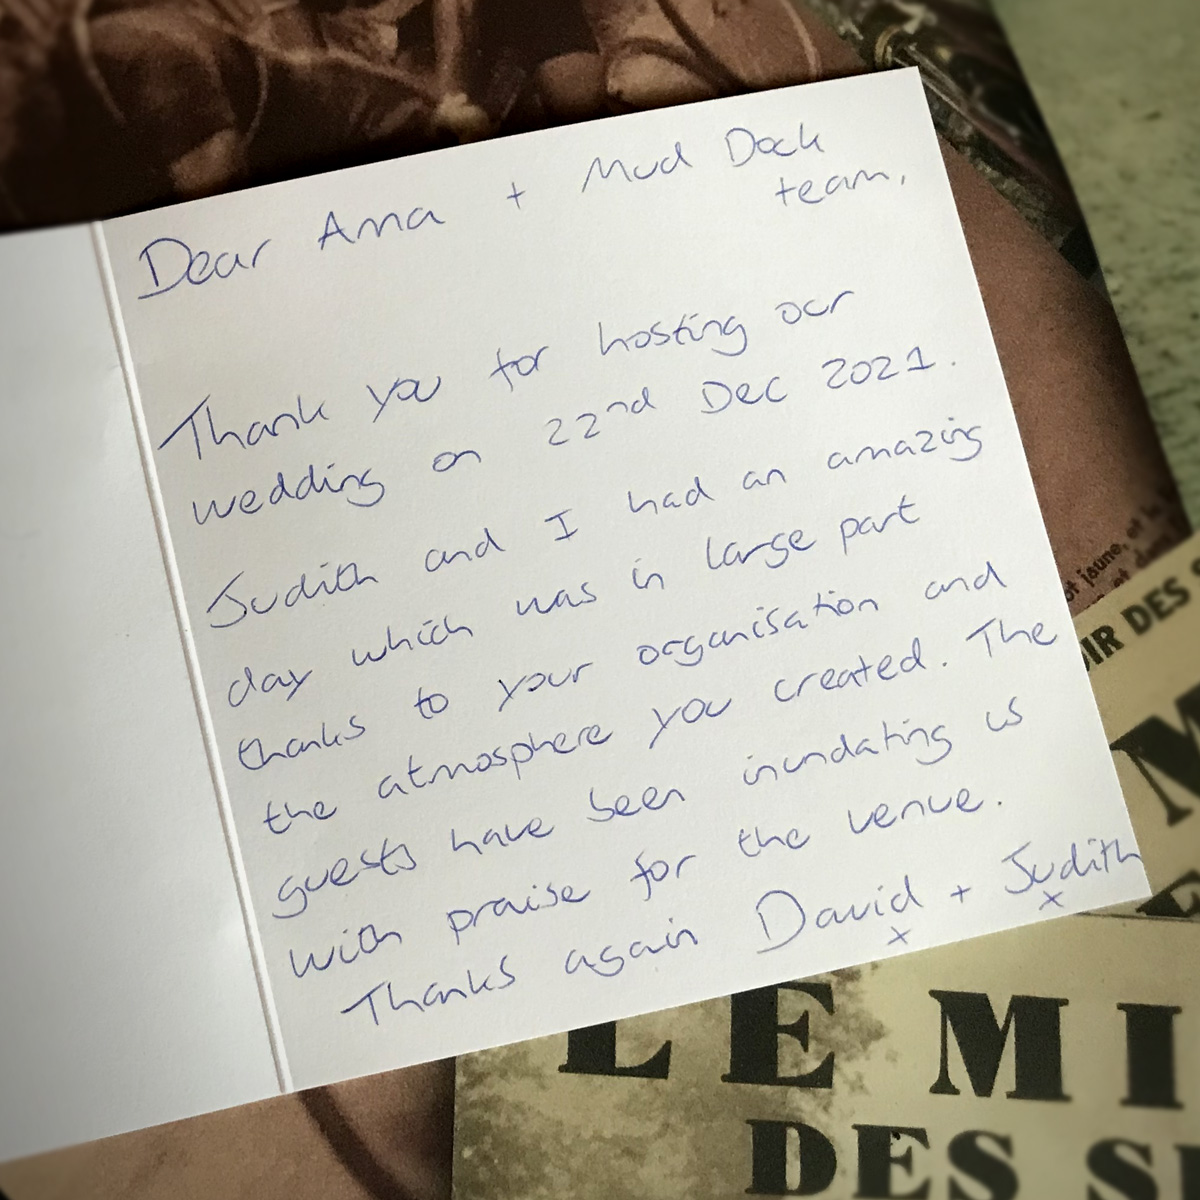 Dear Anna + Mud Dock
team,
Thank you for hosting our
wedding on 22nd Dec 2021.
Judith and I had an amazing
day which was in large part
thanks to your organisation and
the atmosphere you created. The
guests have been inundating us
with praise for the venue.
Thanks again David + Judith
x x
jaune, et le
et dans
IR DES S
M
E
LE MI
DES S